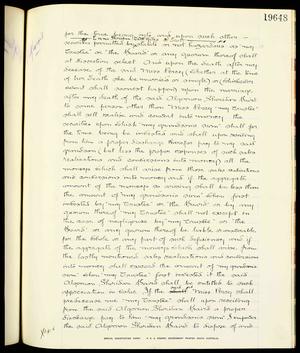 19648
for the time being into and upon such other
securities permitted by statute or not hazardous as "my
Trustee" or the Board or any quorum thereof shall
at discretion select And upon the death after my
decease of the said Miss Percy (whether at the time
of her death she be married or single) or (whichever
event shall soonest happen) upon the marriage
after my death of the said Algernon Sheridan Baird
to some person other than Miss Percy "my Trustee"
shall sell realise and convert into money the
securities upon which "my grandsons sum" shall for
the time being be invested and shall upon receiving
from him a proper discharge therefor pay to my said
grandson (but less the proper expenses of such sales
realisations and conversions into money) all the
moneys which shall arise from those sales realisations
and conversions into money and if the aggregate
amount of the moneys so arising shall be less than
the amount of "my grandsons sum" when first
invested by "my Trustee" or the Board or by any
quorum thereof "my Trustee" shall not except in
the case of negligence by "my Trustee" or the
Board or any quorum thereof be liable or answerable
for the whole or any part of such deficiency and if
the aggregate of the moneys which shall arise from
the lastly mentioned sales realisations and conversions
into money shall exceed the amount of "my grandsons
sum" when "my Trustee" first invested it the said
Algernon Sheridan Baird shall be entitled to such
appreciation in value If the said Miss Percy shall
predecease me "my Trustee" shall upon receiving
from the said Algernon Sheridan Baird a proper
discharge pay to him "my grandsons sum" I empower
the said Algernon Sheridan Baird to dispose of and